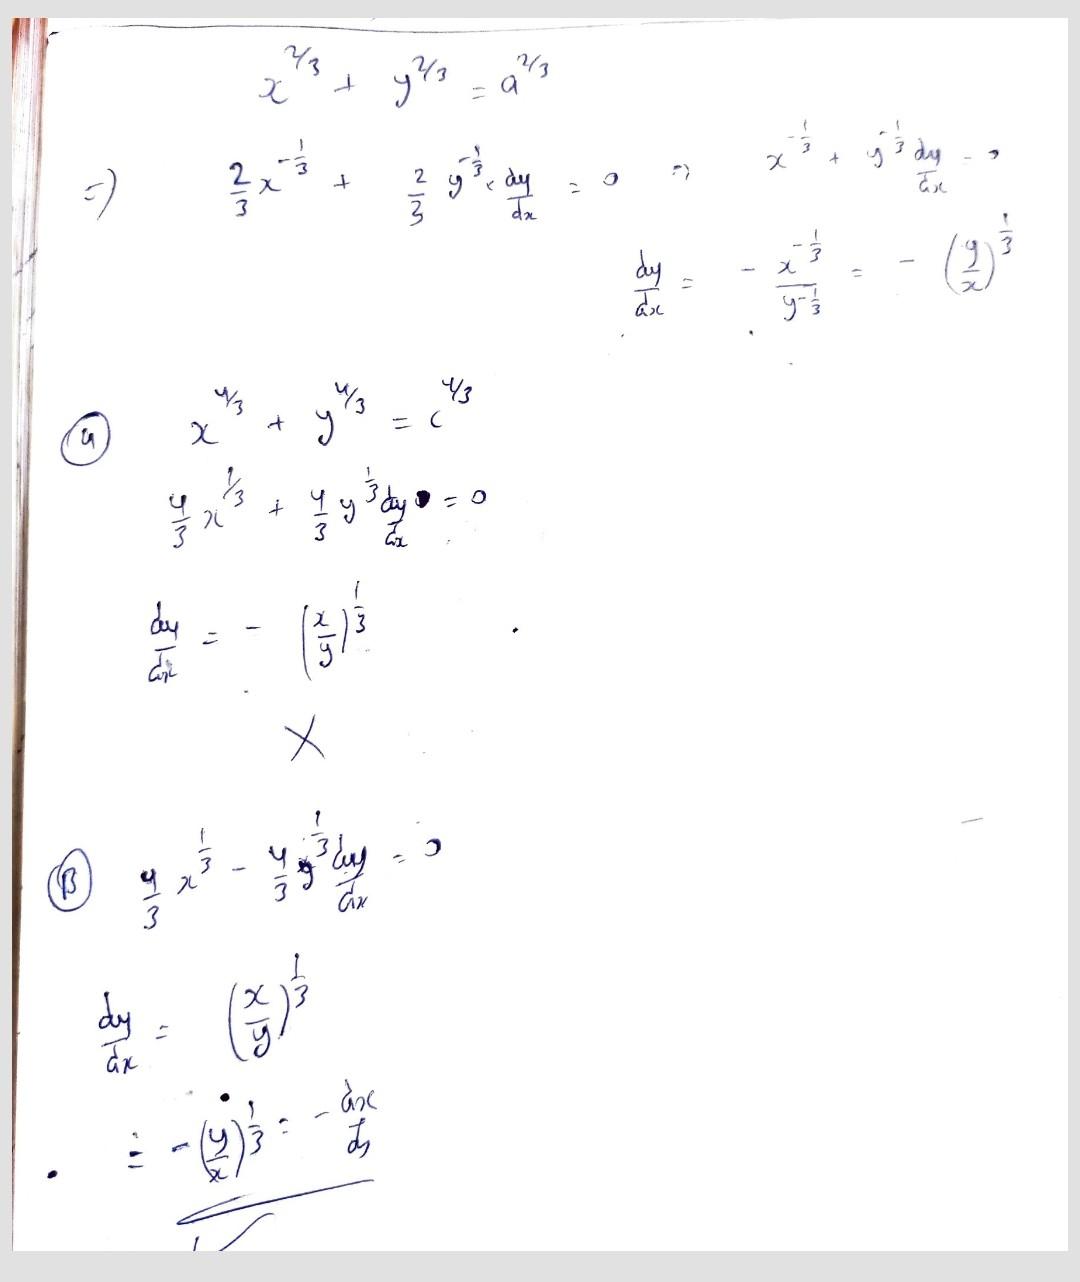 x^{2/3} + y^{2/3} = a^{2/3}
=) \frac{2}{3} x^{-\frac{1}{3}} + \frac{2}{3} y^{-\frac{1}{3}} × \frac{dy}{dx} = 0 => x^{-\frac{1}{3}} + y^{-\frac{1}{3}} \frac{dy}{dx} = 0
\frac{dy}{dx} = - \frac{x^{-\frac{1}{3}}}{y^{-\frac{1}{3}}} = - (\frac{y}{x})^{\frac{1}{3}}
x^{4/3} + y^{4/3} = c^{4/3}
\frac{4}{3} x^{1/3} + \frac{4}{3} y^{\frac{1}{3}} \frac{dy}{dx} = 0
\frac{dy}{dx} = - (\frac{x}{y})^{\frac{1}{3}}
X
(B) \frac{4}{3} x^{\frac{1}{3}} - \frac{4}{3} y^{\frac{1}{3}} \frac{dy}{dx} = 0
\frac{dy}{dx} = (\frac{x}{y})^{\frac{1}{3}}
= - (\frac{y}{x})^{\frac{1}{3}} = - \frac{dx}{dy}